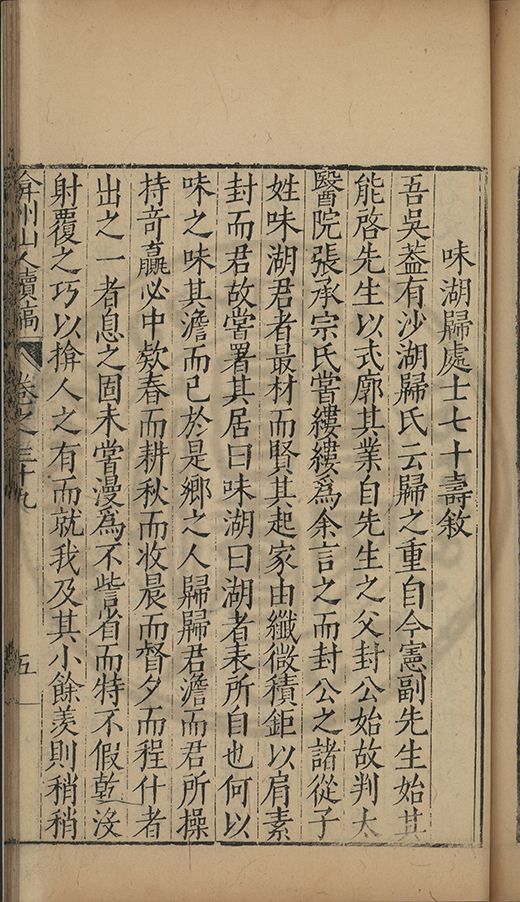 味湖歸處士七十壽敘
吾吳蓋有沙湖歸氏云歸之重自今憲副先生始其
能啓先生以式廓其業自先生之父封公始故判太
醫院張承宗氏嘗縷縷爲余言之而封公之諸從子
姓味湖君者最材而賢其起家由纖微積鉅以肩素
封而君故嘗署其居曰味湖曰湖者表所自也何以
味之味其澹而已於是鄉之人歸歸君澹而君所操
持竒贏必中欵春而耕秋而收晨而督夕而程什者
出之一者息之固未嘗漫爲不訾省而特不假乾沒
射覆之巧以揜人之有而就我及其小餘羨則稍稍
弇州山人續稿 卷之三十九 五